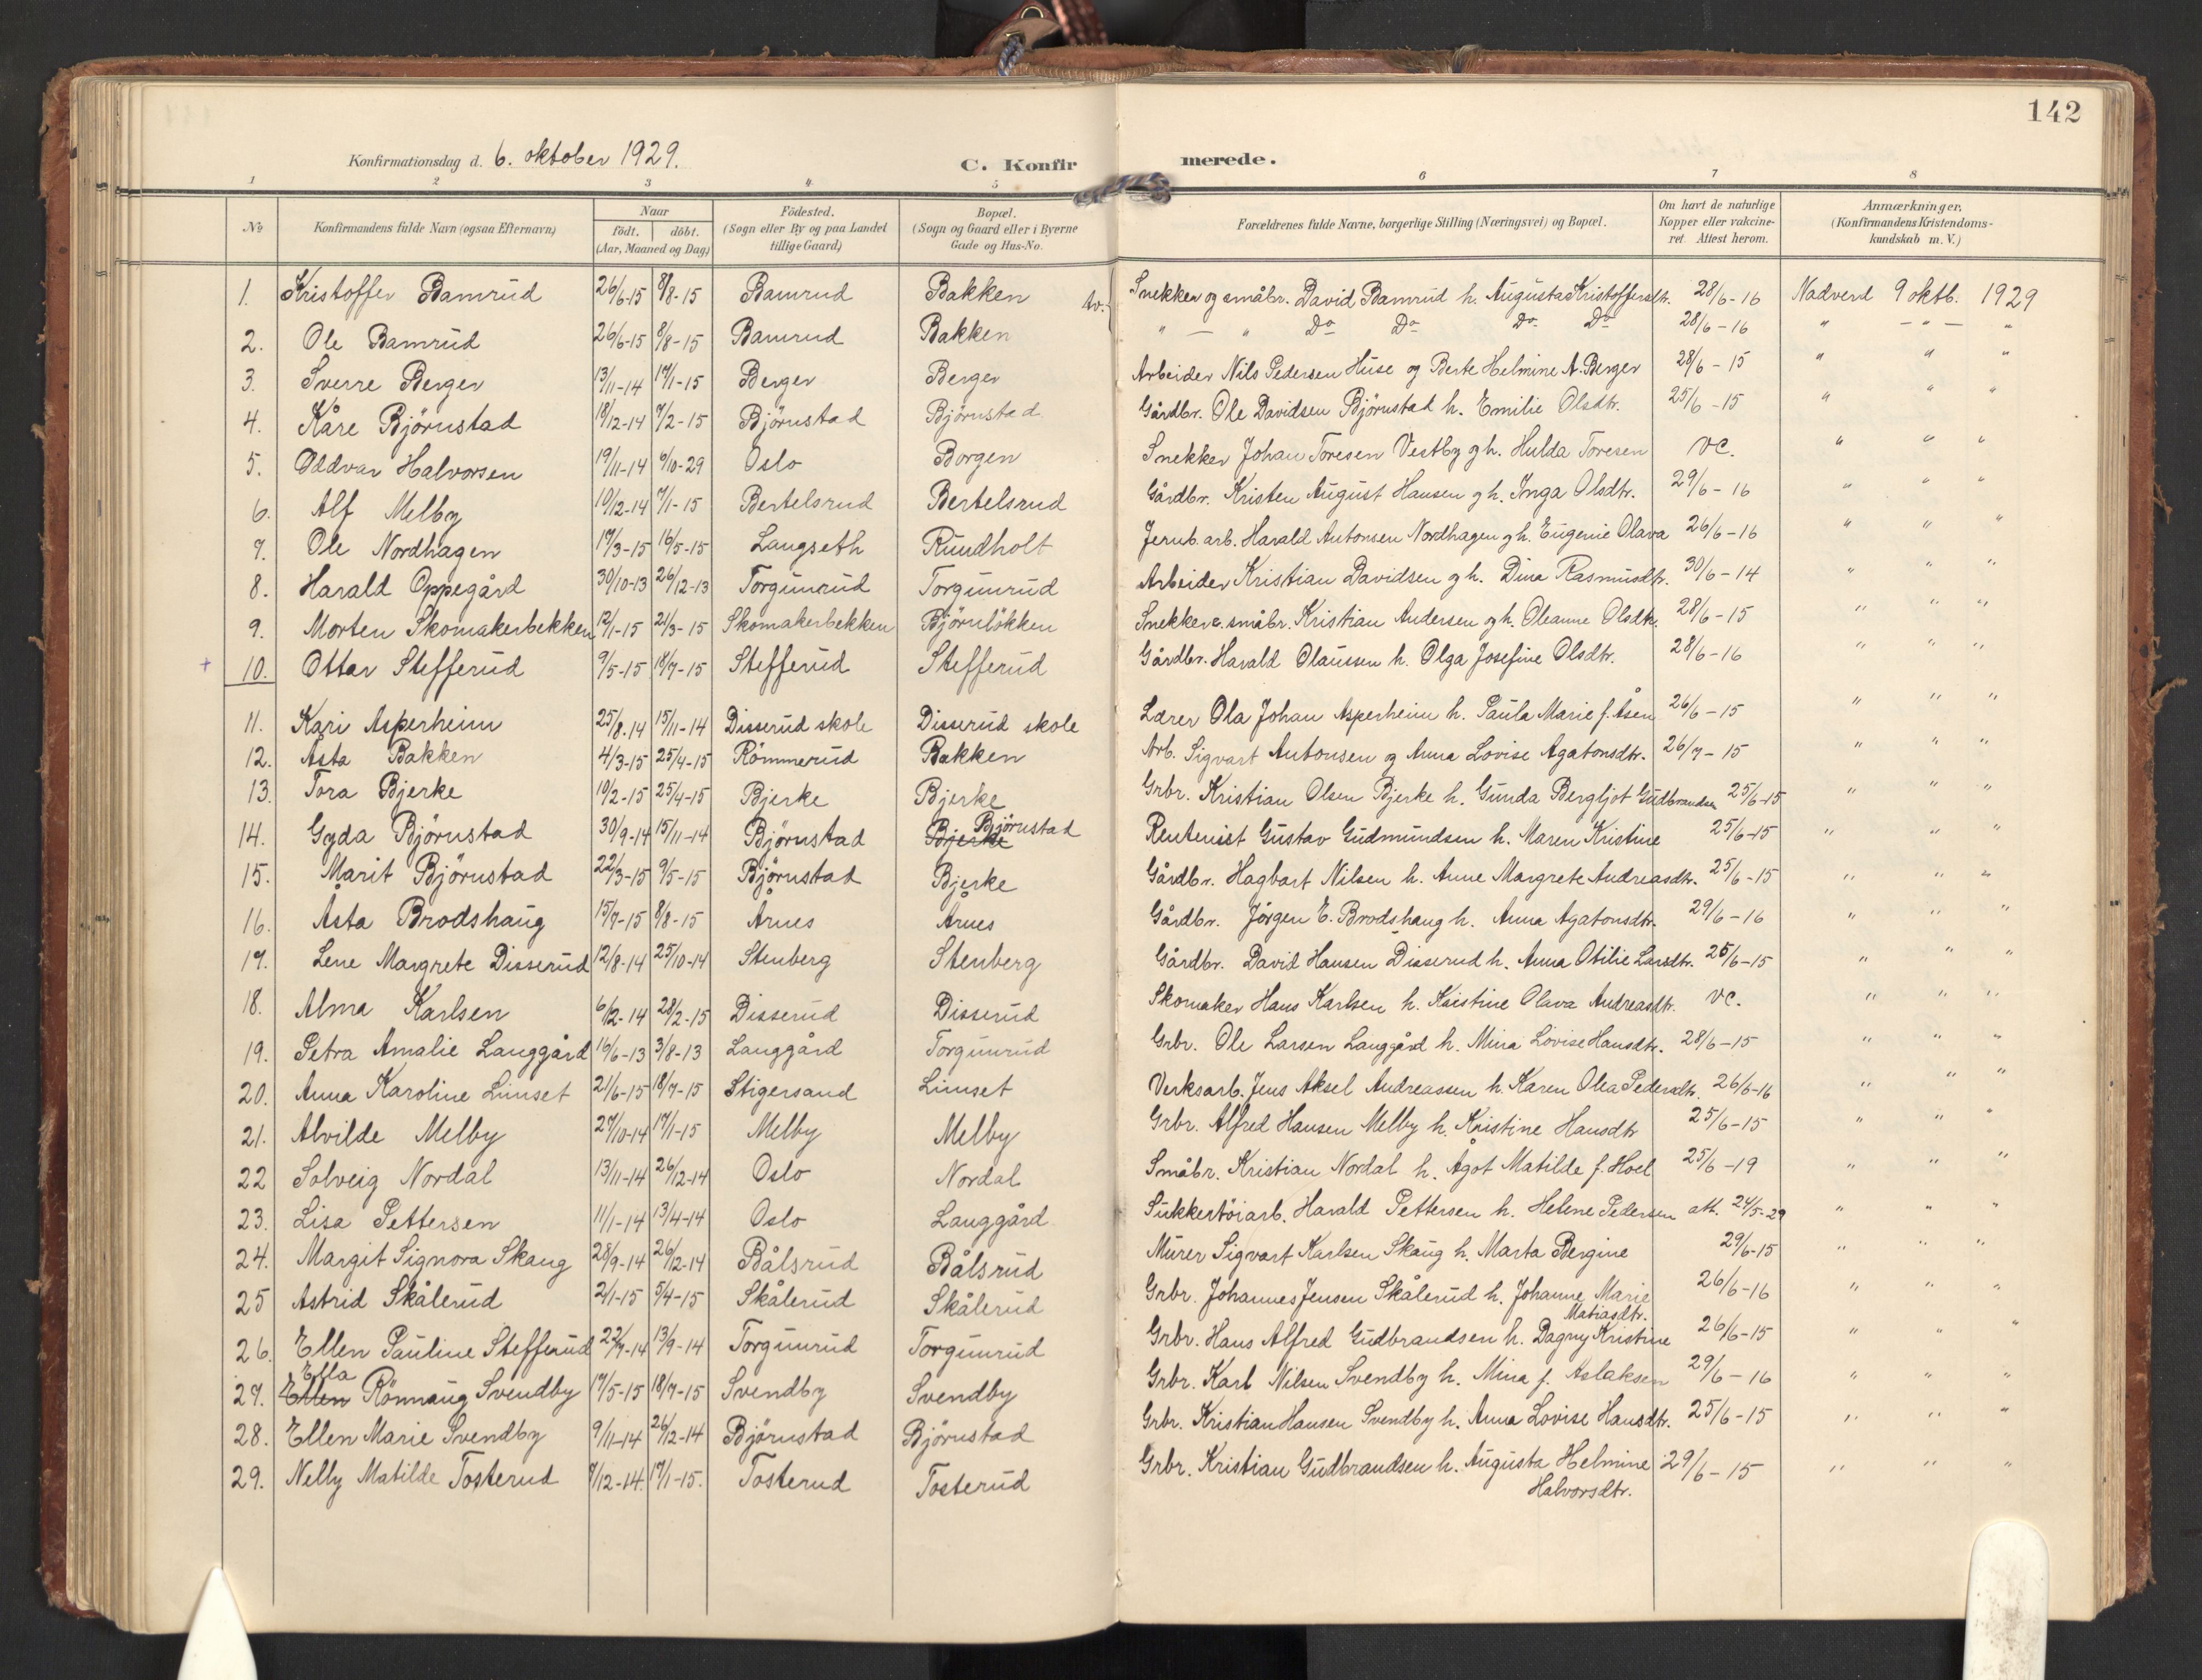 142
Konfirmationsdag d. 6. oktober 1929. C. Konfirmerede.
1 2 3 4 5 6 7 8
№ Konfirmandens fulde Navn (ogsaa Efternavn) Naar födt. döbt. (Aar, Maaned og Dag) Födested. (Sogn eller By og paa Landet tillige Gaard) Bopæl. (Sogn og Gaard eller i Byerne Gade og Hus-No. Forældrenes fulde Navne, borgerlige Stilling (Næringsvei) og Bopæl. Om havt de naturlige Kopper eller vakcineret. Attest herom. Anmærkninger. (Konfirmandens Kristendomskundskab m. V.)
1. Kristoffer Bamrud 26/6-15 8/8-15 Bamrud Bakken tv. Snekker og småbr. David Bamrud h. Augusta Kristoffersdtr. 28/6-16 Nadverd 9 oktb. 1929
2. Ole Bamrud 26/6-15 8/8-15 Bamrud Bakken " — " Do Do Do Do 28/6-16 " — " — "
3. Sverre Berger 13/11-14 17/1-15 Berger Berger Arbeider Nils Pedersen Huse og Berte Helmine A. Berger 28/6-15 " " "
4. Kåre Björnstad 18/12-14 7/2-15 Björnstad Björnstad Gårdbr. Ole Davidsen Björnstad h. Emilie Olsdtr. 25/6-15 " " "
5. Oddvar Halvorsen 19/11-14 6/10-29 Oslo Borgen Snekker Johan Toresen Vestby og h. Hulda Toresen vc. " " "
6. Alf Melby 10/12-14 7/1-15 Bertelsrud Bertelsrud Gårdbr. Kristen August Hansen og h. Inga Olsdtr. 29/6-16 " " "
7. Ole Nordhagen 17/3-15 16/5-15 Langseth Rundholt Jernb. arb. Harald Antonsen Nordhagen og h. Eugenie Olava 26/6-16 " " "
8. Harald Oppegård 30/10-13 26/12-13 Torgunrud Torgunrud Arbeider Kristian Davidsen og h. Dina Rasmusdtr. 30/6-14 " " "
9. Morten Skomakerbekken 12/1-15 21/3-15 Skomakerbekken Björnlökken Snekker o. småbr. Kristian Andersen og h. Oleanne Olsdtr. 28/6-15 " " "
+ 10. Ottar Stefferud 9/5-15 18/7-15 Stefferud Stefferud Gårdbr. Harald Olaussen h. Olga Josefine Olsdtr. 28/6-16 " " "
11. Kari Asperheim 25/8.14 15/11-14 Disserud skole Disserud skole Lærer Ola Johan Asperheim h. Paula Marie f. Åsen 26/6-15 " " "
12. Åsta Bakken 4/3-15 25/4-15 Römmerud Bakken Arb. Sigvart Antonsen og Anna Lovise Agatonsdtr. 26/7-15 " " "
13. Tora Bjerke 10/2-15 25/4-15 Bjerke Bjerke Grbr. Kristian Olsen Bjerke h. Gunda Bergljot Gudbrandsen 25/6-15 " " "
14. Gyda Björnstad 30/9-14 15/11-14 Björnstad Bjerke Björnstad Rentenist Gustav Gudmundsen h. Maren Kristine 25/6-15 " " "
15. Marit Björnstad 22/3-15 9/5-15 Björnstad Bjerke Gårdbr. Hagbart Nilsen h. Anne Margrete Andreasdtr. 25/6-15 " " "
16. Åsta Brodshaug 15/7-15 8/8-15 Årnes Årnes Gårdbr. Jörgen E. Brodshaug h. Anna Agatonsdtr. 29/6-16 " " "
17. Lene Margrete Disserud 12/8-14 25/10-14 Stenberg Stenberg Gårdbr. David Hansen Disserud h. Anna Otilie Larsdtr. 25/6-15 " " "
18. Alma Karlsen 6/12-14 28/2-15 Disserud Disserud Skomaker Hans Karlsen h. Kristine Olava Andreasdtr. vc. " " "
19. Petra Amalie Langgård 16/6-13 3/8-13 Langgård Torgunrud Grbr. Ole Larsen Langgård h. Mina Lovise Hansdtr. 28/6-15 " " "
20. Anna Karoline Linset 21/6-15 18/7-15 Stigersand Linset Verksarb. Jens Aksel Andreassen h. Karen Olea Pedersdtr. 26/6-16 " " "
21. Alvilde Melby 27/10-14 17/1-15 Melby Melby Grbr. Alfred Hansen Melby h. Kristine Hansdtr 25/6-15 " " "
22 Solveig Nordal 13/11-14 26/12-14 Oslo Nordal Småbr. Kristian Nordal h. Ågot Matilde f. Hoel 25/6-19 " " "
23. Lisa Pettersen 11/1-14 13/4-14 Oslo Langgård Sukkertöiarb. Harald Pettersen h. Helene Pedersen att. 24/5-29 " " "
24. Margit Signora Skaug 28/9-14 26/12-14 Bålsrud Bålsrud Murer Sigvart Karlsen Skaug h. Marta Bergine 29/6-15 " " "
25 Astrid Skålerud 2/1-15 5/4-15 Skålerud Skålerud Grbr. Johannes Jensen Skålerud h. Johanne Marie Matiasdtr. 26/6-16 " " "
26. Ellen Pauline Stefferud 22/7-14 13/9-14 Torgunrud Torgunrud Grbr. Hans Alfred Gudbrandsen h. Dagny Kristine 26/6-15 " " "
27. Ellen Ella Rönnaug Svendby 17/5-15 18/7-15 Svendby Svendby Grbr. Karl Nilsen Svendby h. Mina f. Aslaksen 29/6-16 " " "
28. Ellen Marie Svendby 9/11-14 26/12-14 Björnstad Björnstad Grbr. Kristian Hansen Svendby h. Anna Lovise Hansdtr. 25/6-15 " " "
29. Nelly Matilde Tosterud 7/12-14. 17/1-15. Tosterud Tosterud Grbr. Kristian Gudbrandsen h. Augusta Helmine Halvorsdtr. 29/6-15 " " "